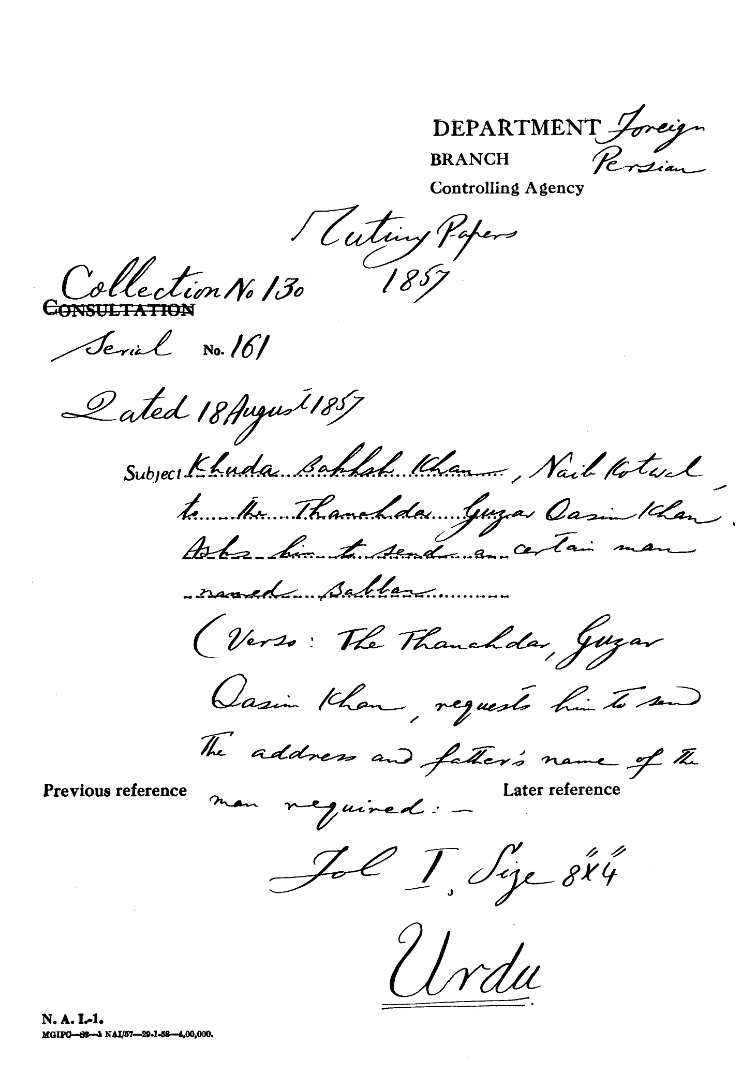 DEPARTMENT Foreign
BRANCH Persian
Controlling Agency
Mutiny Papers
1857
Collection No 130
CONSULTATION
Serial No. 161
Dated 18 August 1857
Subject Khuda Bakhsh Khan, Naib Kotwal,
to the Thanahdar Guzar Qasim Khan.
Asks him to send a certain man
named Babban
(Verso: The Thanahdar, Guzar
Qasim Khan, requests him to send
the address and father's name of the
Previous reference man required:— Later reference
Fol I, Size 8"x4"
Urdu
N. A. I.-1.
MGIPC—S2—5 NAI/57—29-1-58—4,00,000.